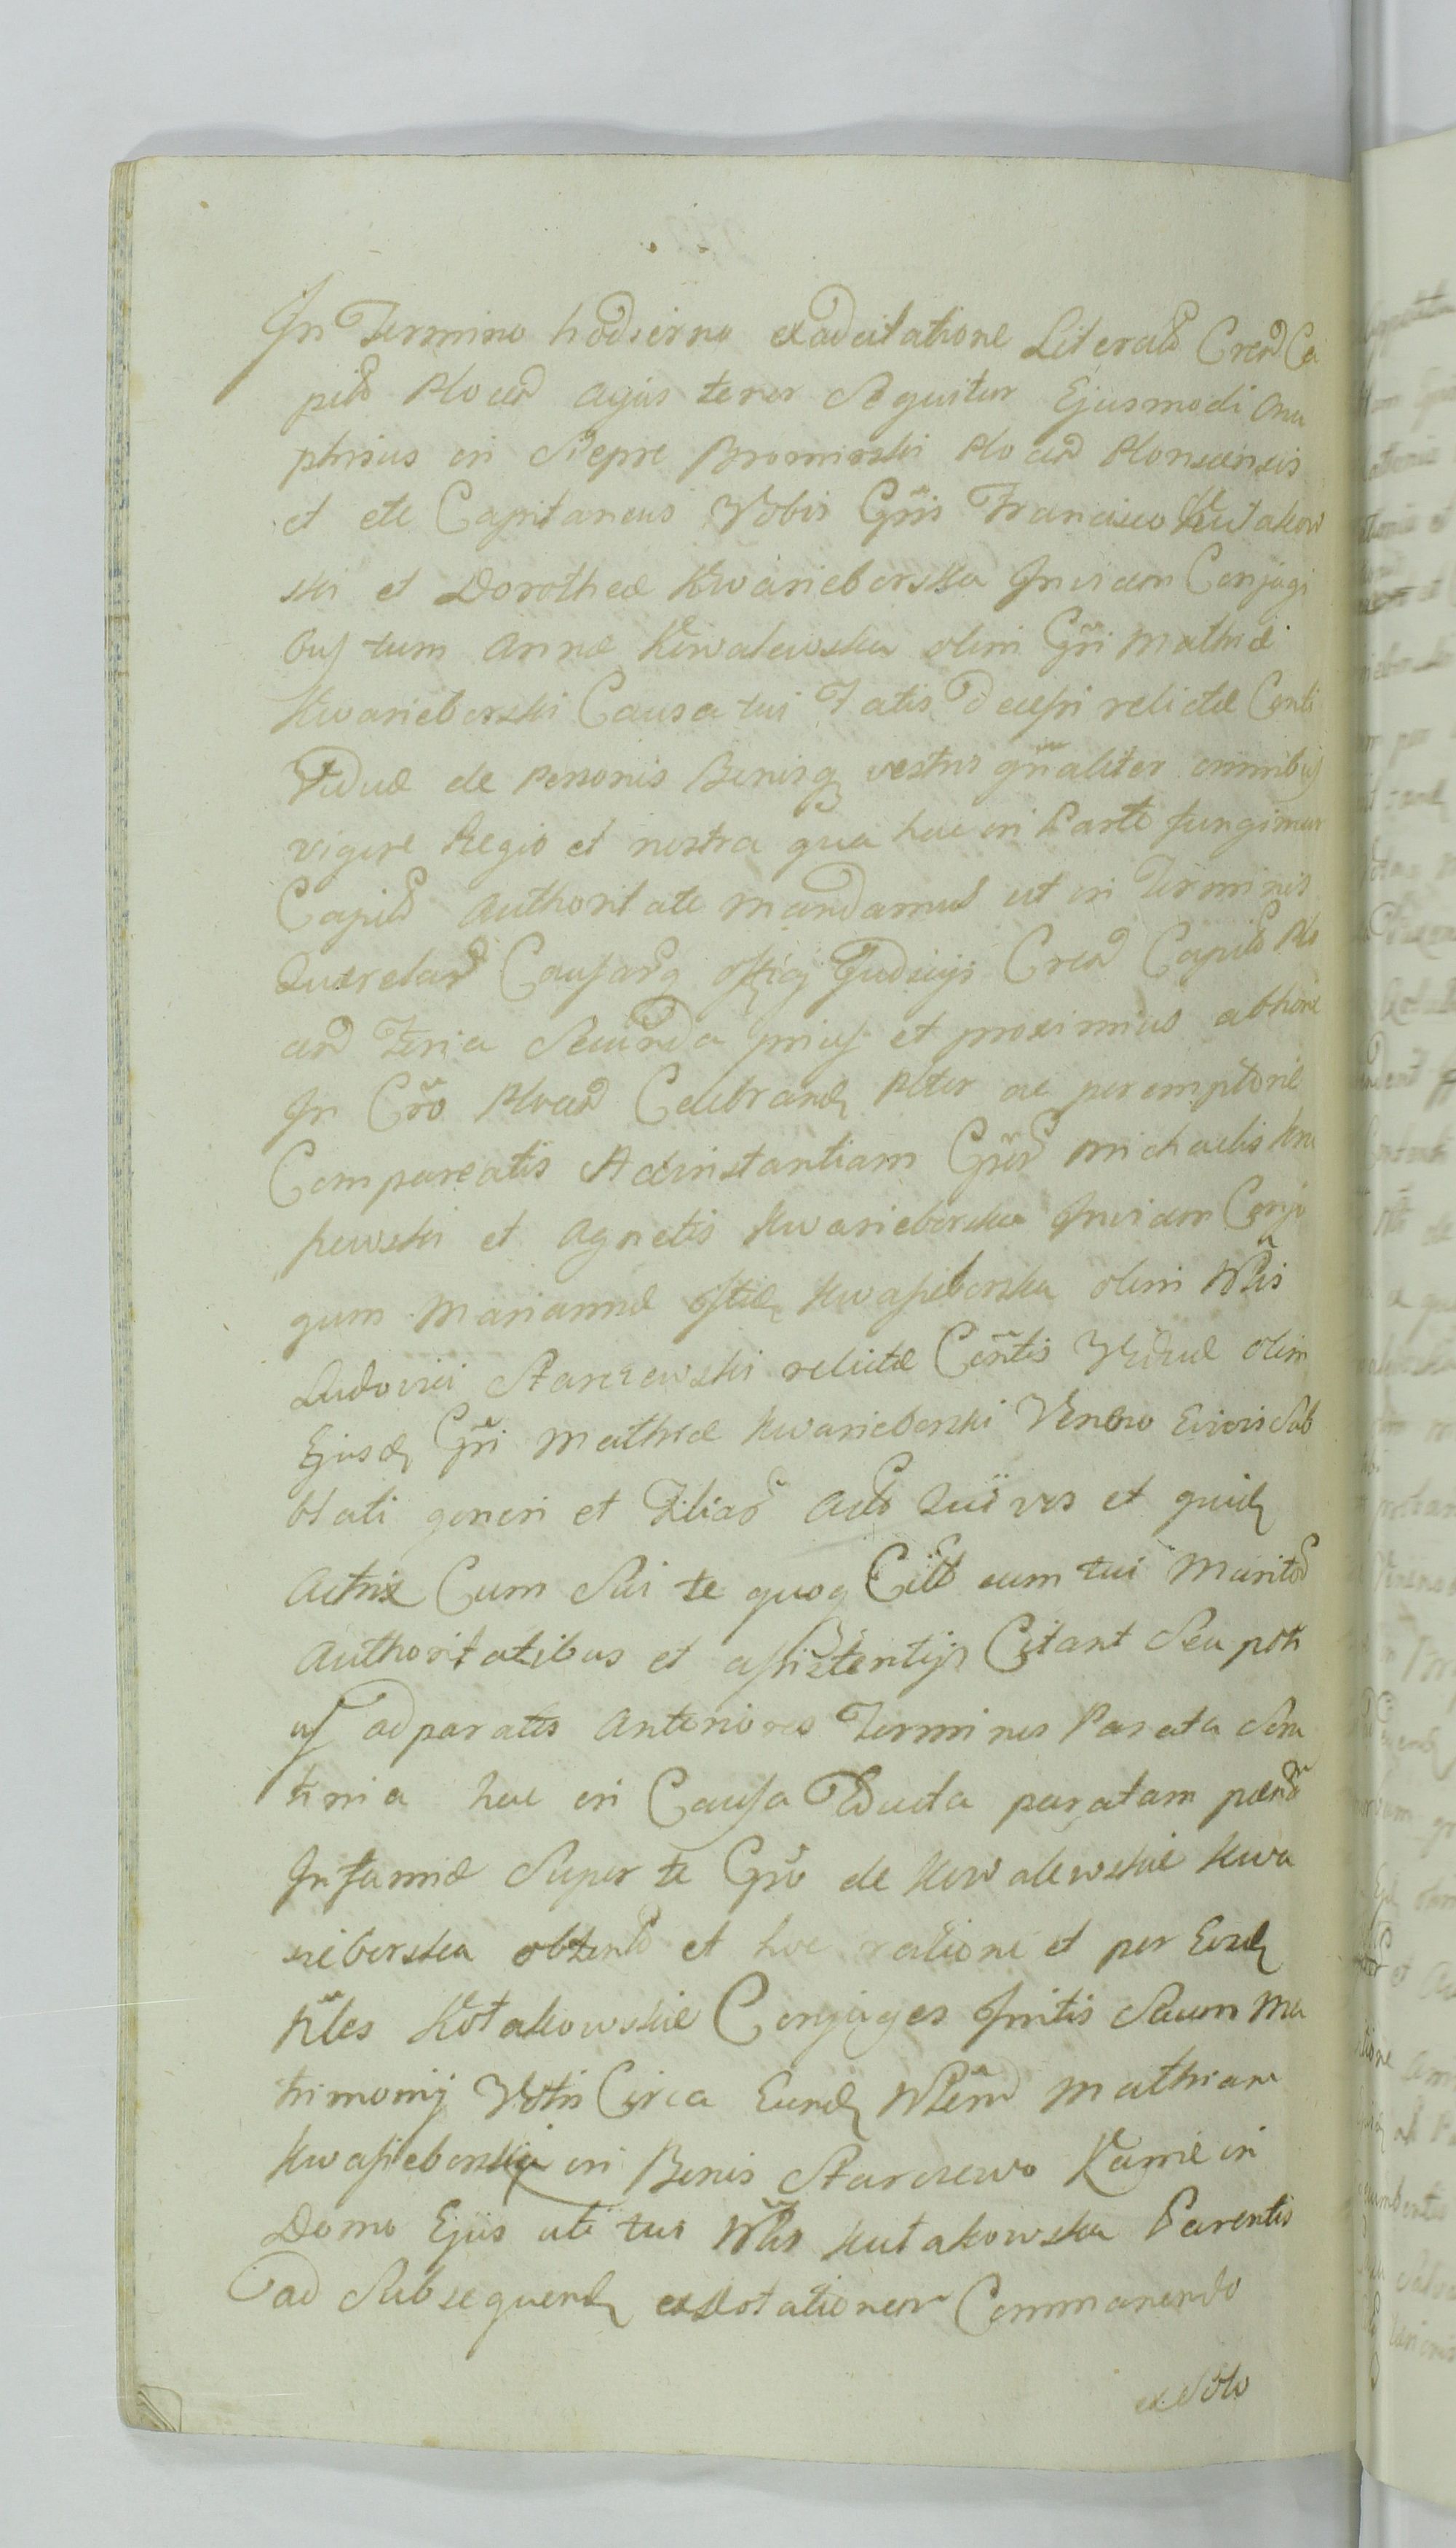 In Termino hodierno ex adcitatione Literali Cren Ca
pitli Plocen cujus tenor Sequitur Ejusmodi Onu
phrius in Niepre Bromirski Plocen Plonscensis
et etc Capitaneus Vobis Gnis Francisco Kutakow
ski et Dorothea Kwasieborska Invicem Conjugi
bus tum Annæ Kowalewska olim Gni Mathiæ
Kwasieborski Causa tui Fatis Decessi relictæ Conti
Viduæ de Personis Bonisq vestris gnaliter omnibus
vigore Regio et nostra qua hac in Parte fungimur
Capitli Authoritate Mandamus ut in Terminis
Querelar Causarq Offcij Judicijs Cren Capitli Plo
cen Feria Secunda prius et proximius abhinc
In Cro Plocen Celebrand Plter ac peremptorie
Compareatis Ad instantiam Gnor Michaelis Kru
pewski et Agnetis Kwasieborska Invicem Conju
gum Mariannæ Kwasieborska olim Nblis
Ludovici Starczewski relictæ Contis Viduæ olim
Ejusd Gni Mathiæ Kwasieborski Veneno Evivis Sub
blati generi et Filiar Act Qui vos et quid
Actrix Cum Sui te quoq Citt cum tui Maritor
Authoritatibus et assistentijs Citant Seu poti
us ad paratis Anteriores Terminos Parata Scru
tinia hac in Causa Ducta paratam pænam
Infamiæ Super te Gn de Kowalewskie Kwa
sieborska obtent et hoc ratione et per Eosd
Nbles Kotakowskie Conjuges Initis Secum Ma
trimonij Votis Circa Eund Nblem Mathiam
Kwasieborski in Bonis Starczewo Kamie in
Domo Ejus uti tui Nblis Kutakowska Parentis
ad Subsequend exdotationem Commanendo